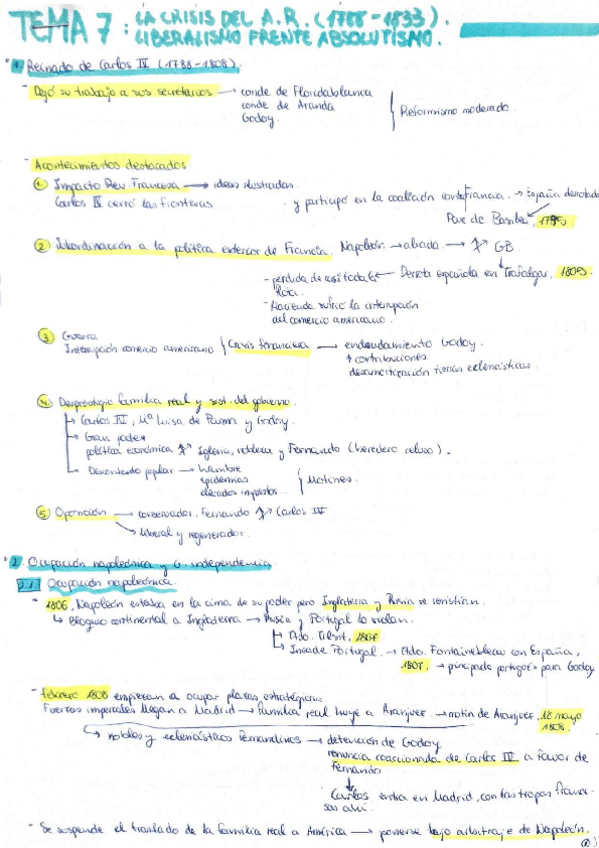 TEMA 7: LA CRISIS DEL A.R. (1788-1833).
LIBERALISMO FRENTE ABSOLUTISMO.
1. Reinado de Carlos IV (1788-1808).
- Dejó su trabajo a sus secretarios → conde de Floridablanca
conde de Aranda
Godoy.
Reformismo moderado.
- Acontecimientos destacados
1. Impacto Rev. Francesa → ideas ilustradas.
Carlos IV cerró las fronteras y participó en la coalición contrafrancia. → España derrotada
Paz de Basilea, 1795
2. Subordinación a la política exterior de Francia. Napoleón → aliada → GB
Derrota española en Trafalgar, 1805
- pérdida de casi toda la flota.
- Hacienda sufrió la interrupción
del comercio americano.
3. Guerra
Interrupción comercio americano { Crisis financiera → endeudamiento Godoy.
↑ contribuciones
desamortización tierras eclesiásticas.
4. Desprestigio familia real y sist. del gobierno.
→ Carlos IV, Mª Luisa de Parma y Godoy.
→ Gran poder
política económica Iglesia, nobleza y Fernando (heredero celoso).
→ Descontento popular → hambre
epidemias
elevados impuestos.
} Motines.
5. Oposición → conservador, Fernando Carlos IV
→ liberal y regenerador.
2. Ocupación napoleónica y G. independencia
2.1. Ocupación napoleónica.
- 1806, Napoleón estaba en la cima de su poder pero Inglaterra y Rusia se resistían.
↳ Bloqueo continental a Inglaterra → Rusia y Portugal lo violan.
→ Ttdo. Tilsit, 1807
→ Invade Portugal. → Ttdo. Fontainebleau con España,
1807. → principado portugués para Godoy.
- febrero 1808 empiezan a ocupar plazas estratégicas.
Fuerzas imperiales llegan a Madrid → familia real huye a Aranjuez. → motín de Aranjuez, 18 mayo
1808.
↳ nobles y eclesiásticos fernandinos → detención de Godoy
renuncia coaccionada de Carlos IV a favor de
Fernando
Carlos entra en Madrid, con las tropas francesas ahí.
- Se suspende el traslado de la familia real a América → ponerse bajo arbitraje de Napoleón.
①